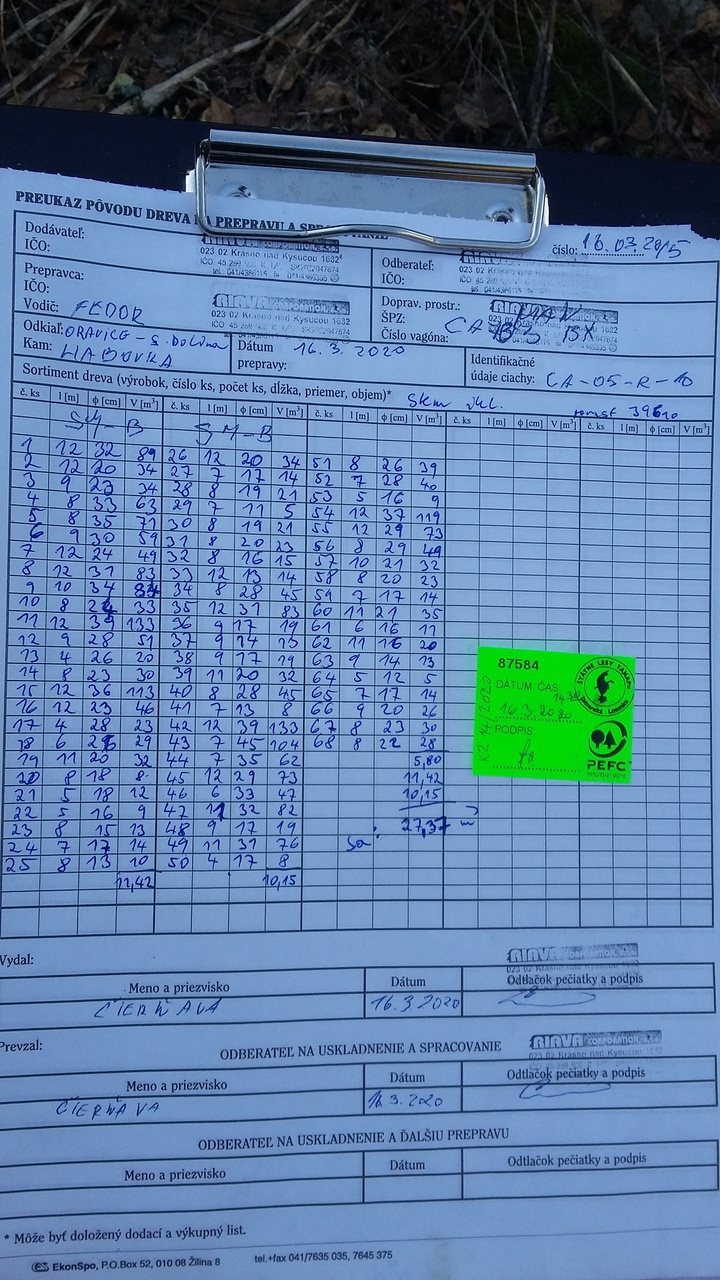 PREUKAZ PÔVODU DREVA NA PREPRAVU A
Dodávateľ:
IČO:
023 02 Krásno nad Kysucou 1632
Odberateľ:
IČO:
RIAVA CORPORATION
číslo: 16.03.20/5
Prepravca:
IČO:
Vodič: FEDOR
RIAVA CORPORATION
023 02 Krásno nad Kysucou 1632
Doprav. prostr.: MAN
ŠPZ: CA
Číslo vagóna:
Odkiaľ: ORAVICE - S. DOLINA
Kam: HABOVKA
Dátum 16.3.2020
prepravy:
Identifikačné
údaje ciachy: CA-05-R-10
Sortiment dreva (výrobok, číslo ks, počet ks, dĺžka, priemer, objem)*
porast 396
č. ks l [m] ϕ [cm] V [m³] č. ks l [m] ϕ [cm] V [m³] č. ks l [m] ϕ [cm] V [m³] č. ks l [m] ϕ [cm] V [m³] č. ks l [m] ϕ [cm] V [m³]
SM-B SM-B
1 12 32 89 26 12 20 34 51 8 26 39
2 12 20 34 27 7 17 14 52 7 28 40
3 9 23 34 28 8 19 21 53 5 16 9
4 8 33 63 29 7 11 5 54 12 37 119
5 8 35 71 30 8 19 21 55 12 29 73
6 9 30 59 31 8 20 23 56 8 29 49
7 12 24 49 32 8 16 15 57 10 21 32
8 12 31 83 33 12 13 14 58 8 20 23
9 10 34 84 34 8 28 45 59 7 17 14
10 8 24 33 35 12 31 83 60 11 21 35
11 12 39 133 36 9 17 19 61 6 16 11
12 9 28 51 37 9 14 13 62 11 16 20
13 4 26 20 38 9 17 19 63 9 14 13
14 8 23 30 39 11 20 32 64 5 12 5
15 12 36 113 40 8 28 45 65 7 17 14
16 12 23 46 41 7 13 8 66 9 20 26
17 4 28 23 42 12 39 133 67 8 23 30
18 6 26 29 43 7 45 104 68 8 22 28
19 11 20 32 44 7 35 62 5,80
20 8 18 8 45 12 29 73 11,42
21 5 18 12 46 6 33 47 10,15
22 5 16 9 47 11 32 82
23 8 15 13 48 9 17 19 Sa: 27,37 m³
24 7 17 14 49 11 31 76
25 8 13 10 50 4 17 8
11,42 10,15
87584
DÁTUM ČAS
16.3.2020
PODPIS
ŠTÁTNE LESY TANAPu
PEFC
Vydal:
RIAVA CORPORATION
Meno a priezvisko
Dátum
Odtlačok pečiatky a podpis
ČIERŇAVA
16.3.2020
Prevzal:
ODBERATEĽ NA USKLADNENIE A SPRACOVANIE
RIAVA CORPORATION
023 02 Krásno nad Kysucou 1632
Meno a priezvisko
Dátum
Odtlačok pečiatky a podpis
ČIERŇAVA
16.3.2020
ODBERATEĽ NA USKLADNENIE A ĎALŠIU PREPRAVU
Meno a priezvisko
Dátum
Odtlačok pečiatky a podpis
* Môže byť doložený dodací a výkupný list.
EkonSpo, P.O.Box 52, 010 08 Žilina 8 tel.+fax 041/7635 035, 7645 375